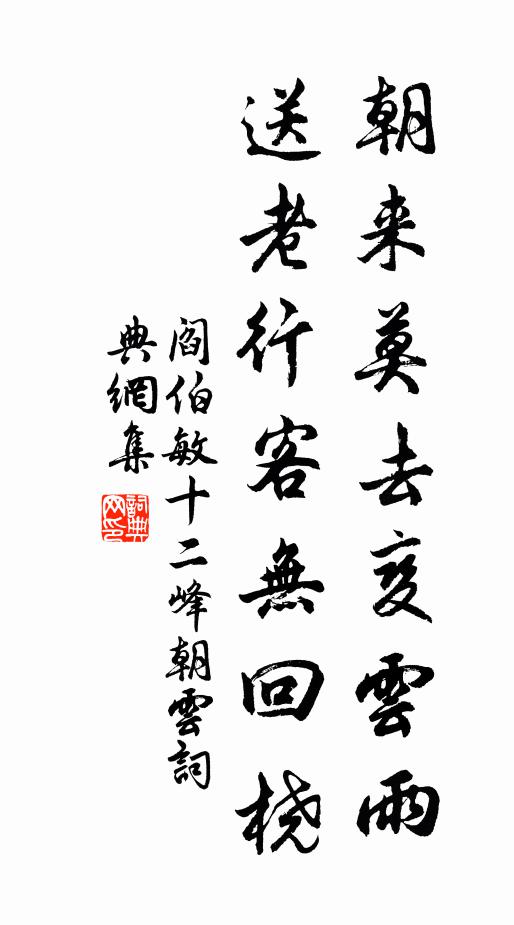 朝来莫去变雲雨
送老行客無回桡
阎伯敏十二峰朝雲詞
典網集
詞典网印